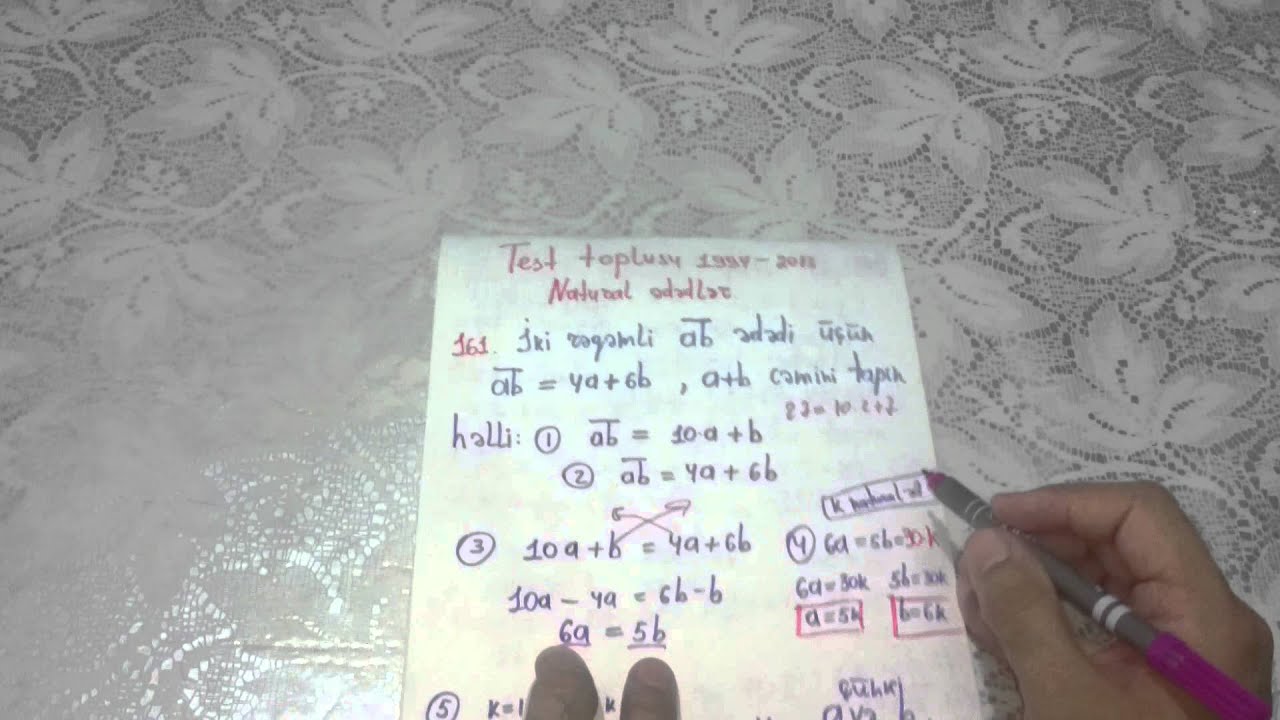 Test toplusu 1994-20
Natural ədədlər
161. İki rəqəmli ab ədədi üçün
ab = 4a+6b , a+b cəmini tapın
həlli: ① ab = 10·a+b
② ab = 4a+6b
③ 10a+b = 4a+6b
10a-4a = 6b-b
6a = 5b
K natural
④ 6a=5b=30·k
6a=30k 5b=30k
a=5k b=6k
⑤ k=1 k
çünki
a və b